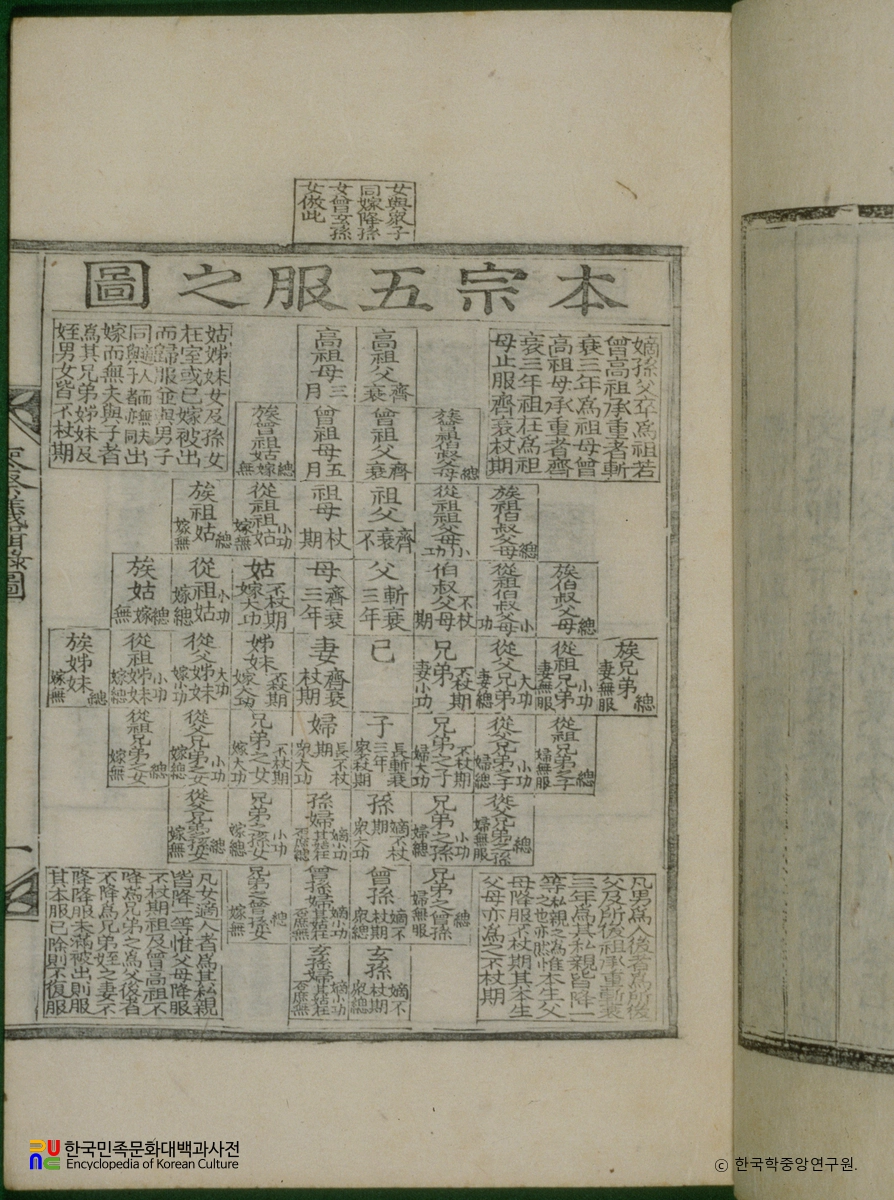 女與衆子
同嫁降孫
女曾玄孫
女倣此
本宗五服之圖
嫡孫父卒爲祖若
曾高祖承重者斬
衰三年爲祖母曾
高祖母承重者齊
衰三年祖在爲祖
母止服齊衰杖期
高祖父 齊衰
高祖母 三月
姑姊妹女及孫女
在室或已嫁被出
而歸服並與男子
同適人而無夫
與子者亦同出
嫁而無夫與子者
爲其兄弟姊妹及
姪男女皆不杖期
族曾祖伯叔父母 緦
曾祖父 齊衰
曾祖母 五月
族曾祖姑 緦 嫁無
族祖伯叔父母 緦
從祖祖父母 小功
祖父 齊衰不
祖母 杖期
從祖祖姑 小功 嫁無
族祖姑 緦 嫁無
族伯叔父母 緦
從祖伯叔父母 小功
伯叔父母 不杖期
父 斬衰三年
母 齊衰三年
姑 不杖期 嫁大功
從祖姑 小功 嫁緦
族姑 緦 嫁無
族兄弟 緦 妻無服
從祖兄弟 小功 妻無服
從父兄弟 大功 妻緦
兄弟 不杖期 妻小功
己
妻 齊衰杖期
姊妹 不杖期 嫁大功
從父姊妹 大功 嫁小功
從祖姊妹 小功 嫁緦
族姊妹 緦 嫁無
從祖兄弟之子 緦 婦無服
從父兄弟之子 小功 婦緦
兄弟之子 不杖期 婦大功
子 長斬衰三年 衆不杖期
婦 長不杖期 衆大功
兄弟之女 不杖期 嫁大功
從父兄弟之女 小功 嫁緦
從祖兄弟之女 緦 嫁無
從父兄弟之孫 緦 婦無服
兄弟之孫 小功 婦緦
孫 嫡不杖期 衆大功
孫婦 嫡小功 其姑在否庶緦
兄弟之孫女 小功 嫁緦
從父兄弟孫女 緦 嫁無
兄弟之曾孫 緦 婦無服
曾孫 嫡不杖期 衆緦
曾孫婦 嫡小功 其姑在否庶無
兄弟之曾孫女 緦 嫁無
玄孫 嫡不杖期 衆緦
玄孫婦 嫡小功 其姑在否庶無
凡男爲人後者爲所後
父及所後祖承重斬衰
三年爲其私親皆降一
等私親之爲
之也亦然惟本生父
母降服不杖期其本生
父母亦爲之不杖期
凡女適人者爲其私親
皆降一等惟父母降服
不杖期祖及曾高祖不
降爲兄弟之爲父後者
不降爲兄弟姪之妻不
降降服未滿被出則服
其本服已除則不復服
圖
一
한국민족문화대백과사전
Encyclopedia of Korean Culture
ⓒ 한국학중앙연구원.